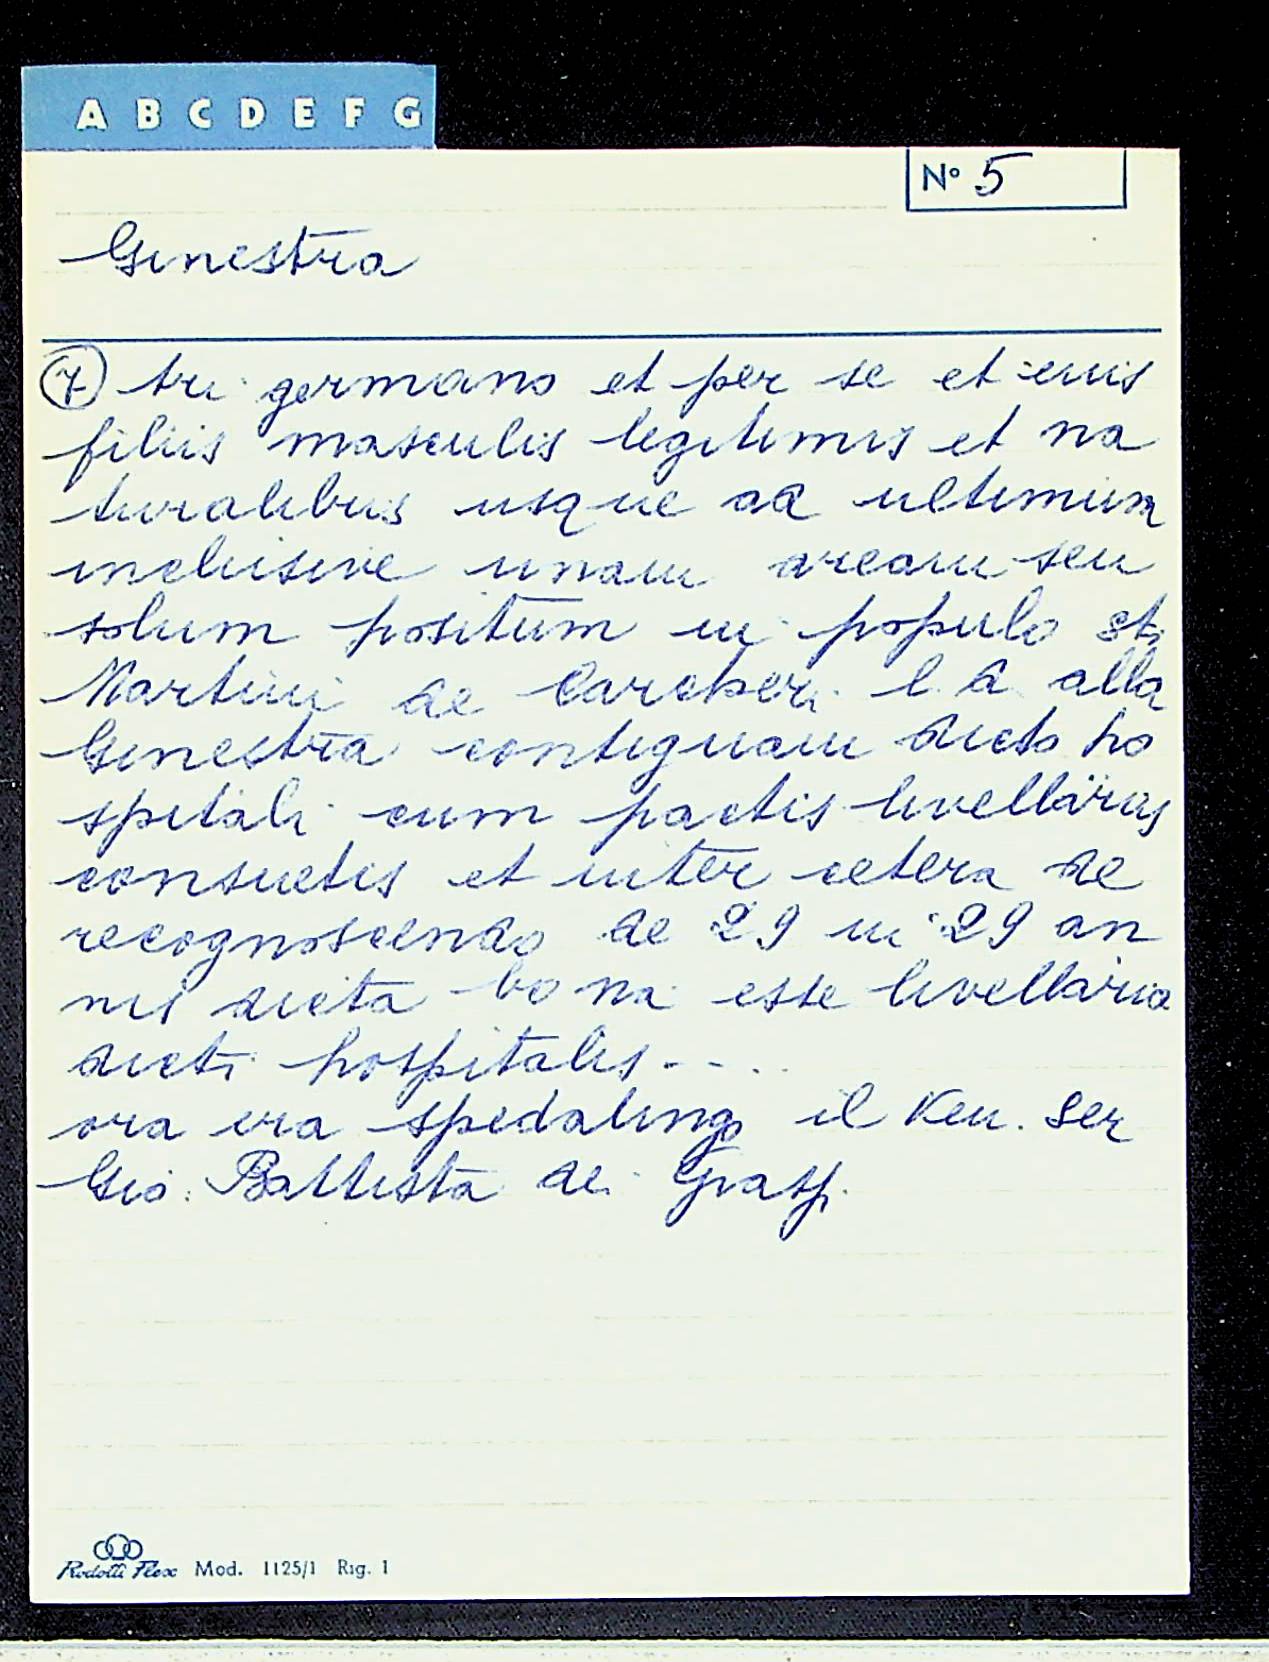 A B C D E F G
N° 5
Ginestra
7 tri germano et per se et eius
filiis masculis legitimis et na
turalibus usque ad ultimum
inclusive unam aream seu
solum positum in populo sti
Martini de Carcheri l. d. alla
Ginestra contiguam dicto ho
spitali cum pactis livellariis
consuetis et inter cetera de
recognoscendo de 29 in 29 an
nis dicta bona esse livellaria
dicti hospitalis....
ora era spedalingo il Ven. Ser
Gio. Battista de
Mod. 1125/1 Rig. 1